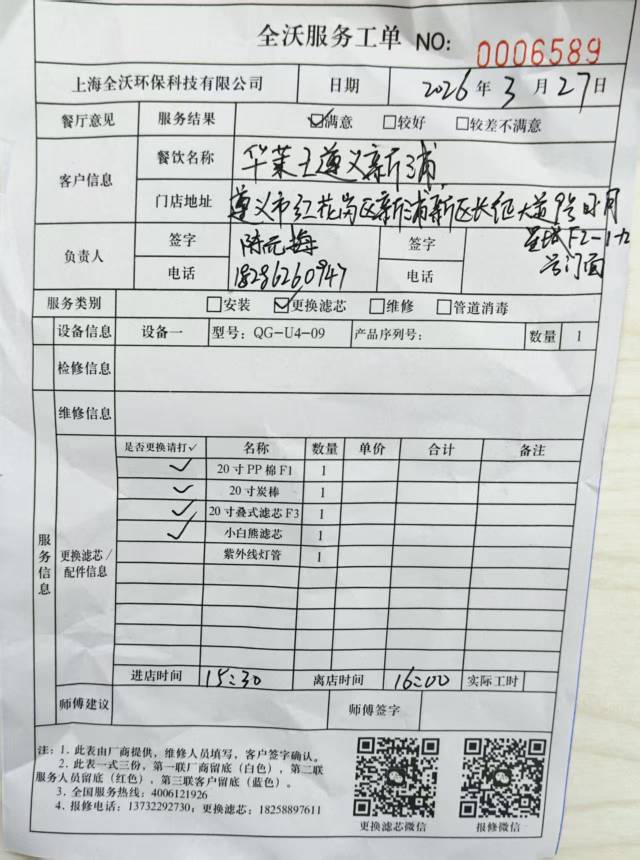 全沃服务工单 NO: 0006589
上海全沃环保科技有限公司 日期 2026年3月27日
餐厅意见 服务结果 ☑满意 □较好 □较差不满意
客户信息 餐饮名称 华莱士遵义新浦
门店地址 遵义市红花岗区新浦新区长征大道9号时间
F2-1-12
号门面
负责人 签字 陈元梅 签字
电话 18286260947 电话
服务类别 □安装 ☑更换滤芯 □维修 □管道消毒
设备信息 设备一 型号: QG-U4-09 产品序列号: 数量 1
检修信息
维修信息
服务信息
更换滤芯/配件信息
是否更换请打✓ 名称 数量 单价 合计 备注
✓ 20寸PP棉F1 1
✓ 20寸炭棒 1
✓ 20寸叠式滤芯F3 1
✓ 小白熊滤芯 1
紫外线灯管 1
进店时间 15:30 离店时间 16:00 实际工时
师傅建议 师傅签字
注: 1. 此表由厂商提供,维修人员填写,客户签字确认。
2. 此表一式三份,第一联厂商留底(白色),第二联
服务人员留底(红色),第三联客户留底(蓝色)。
3. 全国服务热线: 4006121926
4. 报修电话: 13732292730; 更换滤芯: 18258897611
更换滤芯微信 报修微信